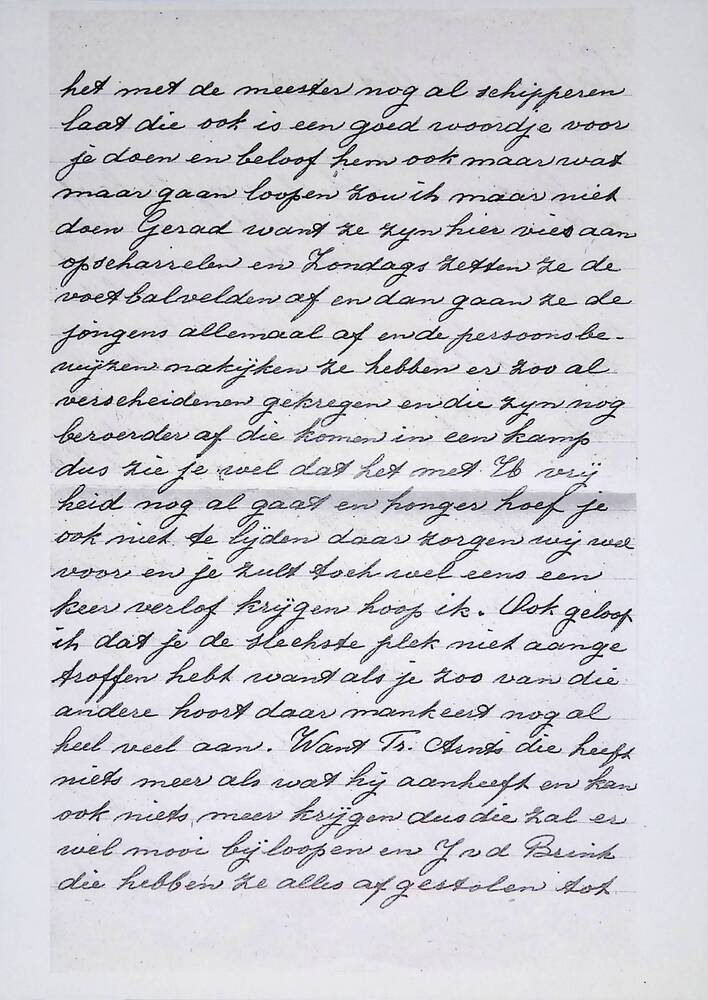 het met de meester nog al schipperen
laat die ook is een goed woordje voor
je doen en beloof hem ook maar wat
maar gaan loopen zou ik maar niet
doen Gerad want ze zyn hier vies aan
opscharrelen en Zondags zetten ze de
voetbalvelden af en dan gaan ze de
jongens allemaal af en de persoonsbe-
wijzen nakijken ze hebben er zoo al
verscheidenen gekregen en die zyn nog
beroerder af die komen in een kamp
dus zie je wel dat het met vrij
heid nog al gaat en honger hoef je
ook niet te lijden daar zorgen wij wel
voor en je zult toch wel eens een
keer verlof krijgen hoop ik. Ook geloof
ik dat je de slechste plek niet aange
troffen hebt want als je zoo van die
andere hoort daar mankeert nog al
heel veel aan. Want Tr. Arnts die heeft
niets meer als wat hij aanheeft en kan
ook niets meer krijgen dus die zal er
wel mooi bijloopen en J v d Brink
die hebben ze alles afgestolen tot